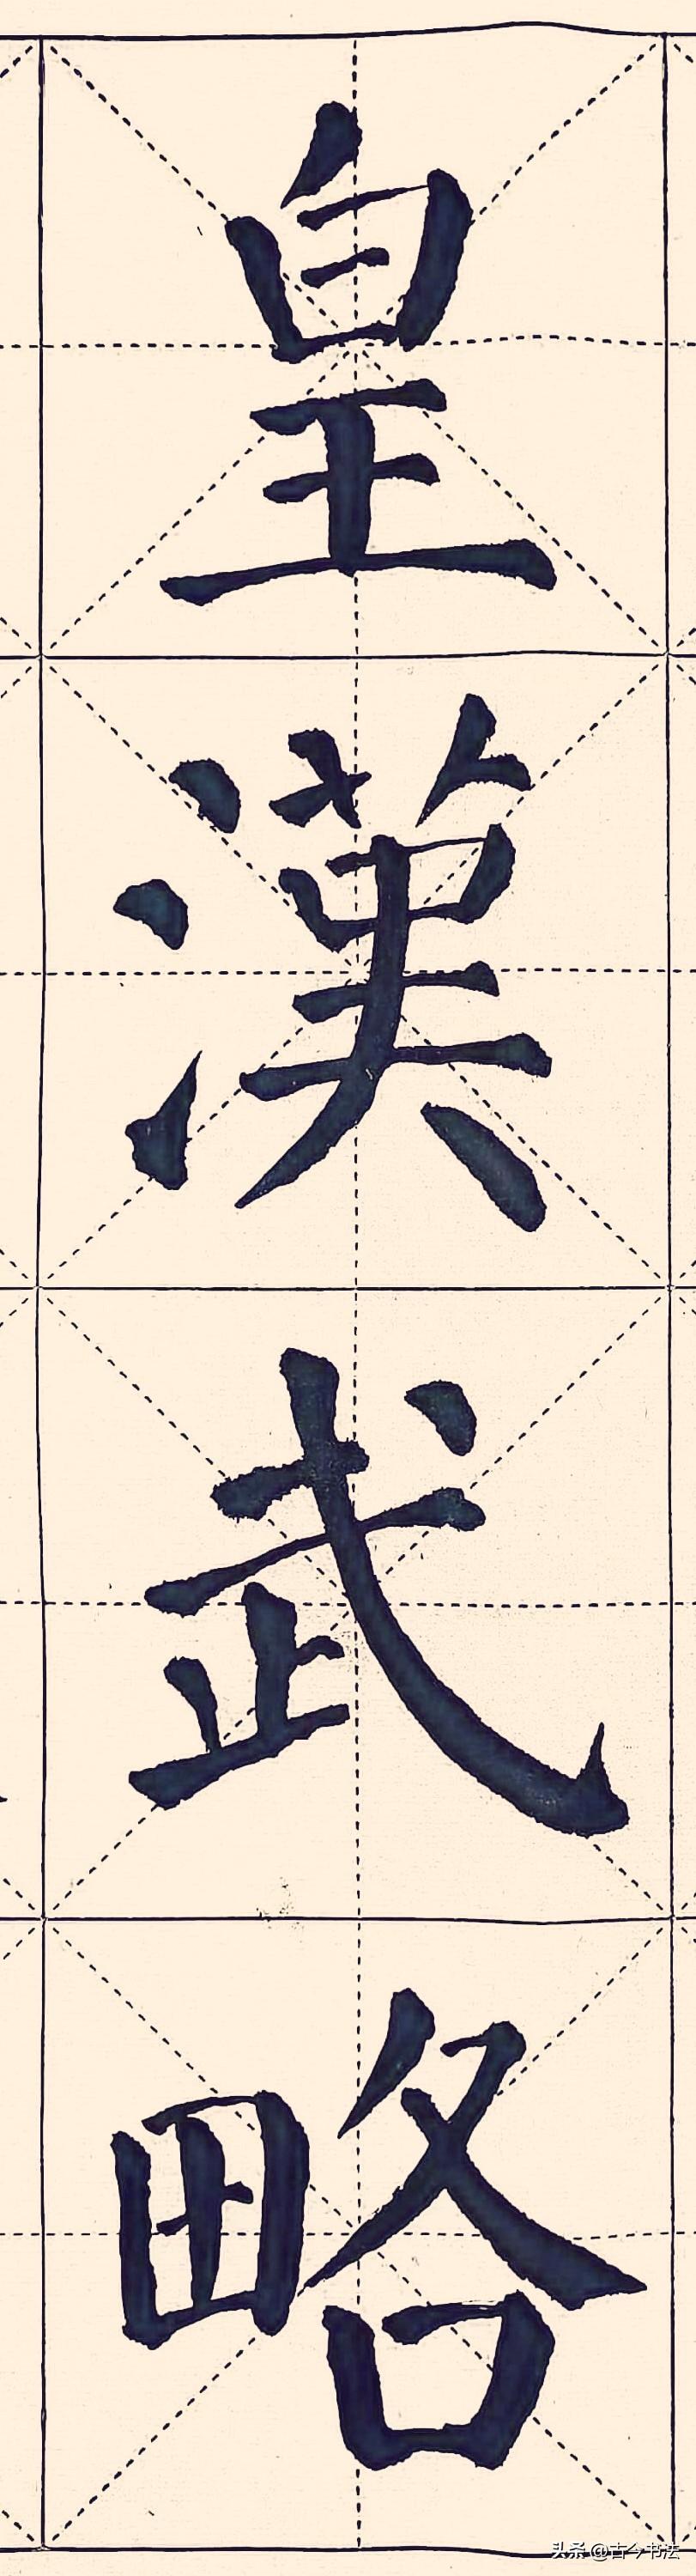 皇漢武略
头条 @古今书法